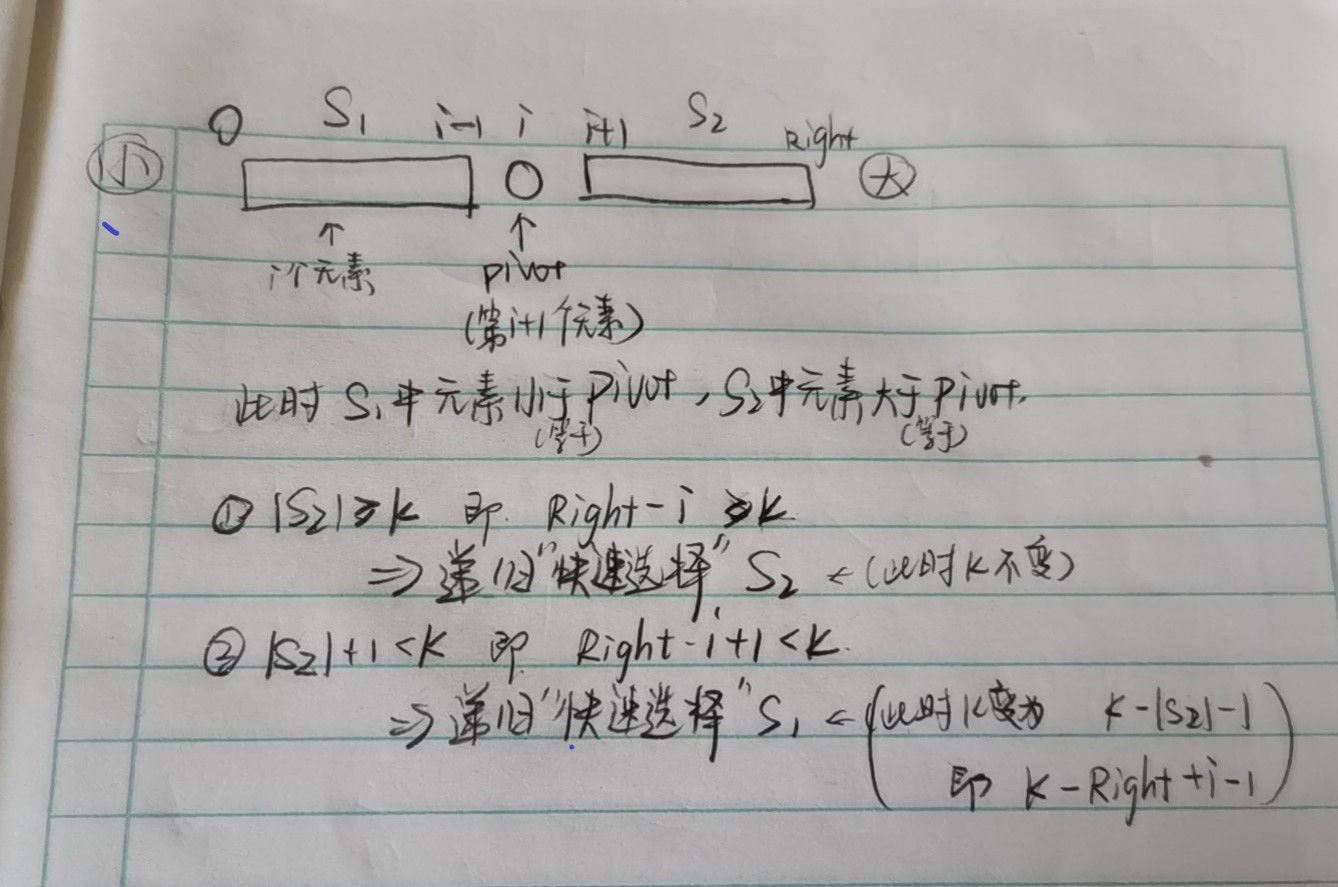 0 S₁ i-1 i i+1 S₂ Right
小 大
↑ ↑
i个元素 pivot
(第i+1个元素)
此时 S₁中元素小于pivot,S₂中元素大于pivot.
(等于) (等于)
① |S₂|≥k 即 Right-i ≥k.
⇒ 递归"快速选择" S₂ ← (此时k不变)
② |S₂|+1<k 即 Right-i+1<k.
⇒ 递归"快速选择" S₁ ← (此时k变为 k-|S₂|-1
即 k-Right+i-1)